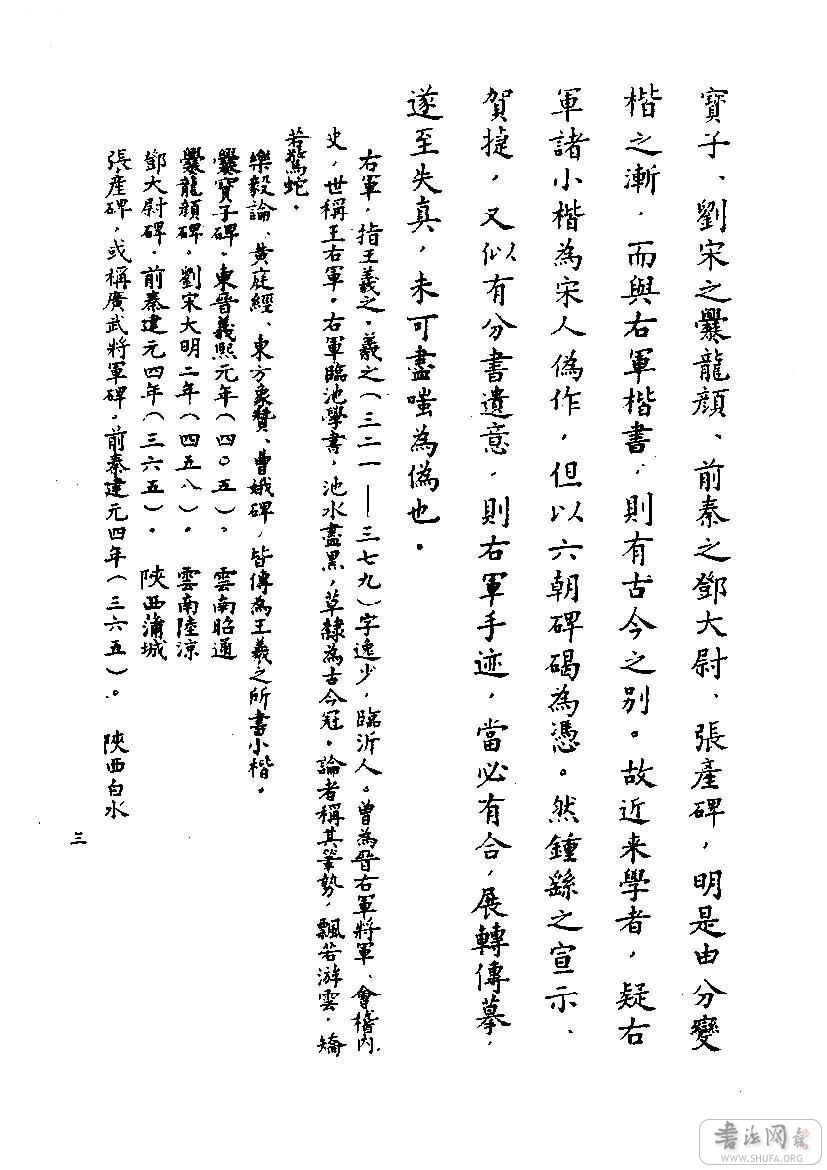 寶子、劉宋之爨龍顏、前秦之鄧大尉、張產碑，明是由分變
楷之漸，而與右軍楷書，則有古今之別。故近来學者，疑右
軍諸小楷為宋人偽作，但以六朝碑碣為憑。然鍾繇之宣示、
賀捷，又似有分書遺意，則右軍手迹，當必有合，展轉傳摹，
遂至失真，未可盡嗤為偽也。
右軍，指王羲之。羲之（三二一——三七九）字逸少，臨沂人。曾為晉右軍將軍、會稽內
史，世稱王右軍。右軍臨池學書，池水盡黑，草隸為古今冠。論者稱其筆勢，飄若游雲，矯
若驚蛇。
樂毅論、黃庭經、東方象贊、曹娥碑，皆傳為王羲之所書小楷。
爨寶子碑，東晉義熙元年（四〇五）。雲南昭通
爨龍顏碑，劉宋大明二年（四五八）。雲南陸涼
鄧大尉碑，前秦建元四年（三六五）。陝西蒲城
張產碑，或稱廣武將軍碑，前秦建元四年（三六五）。陝西白水
三
書法网
WWW.SHUFA.ORG